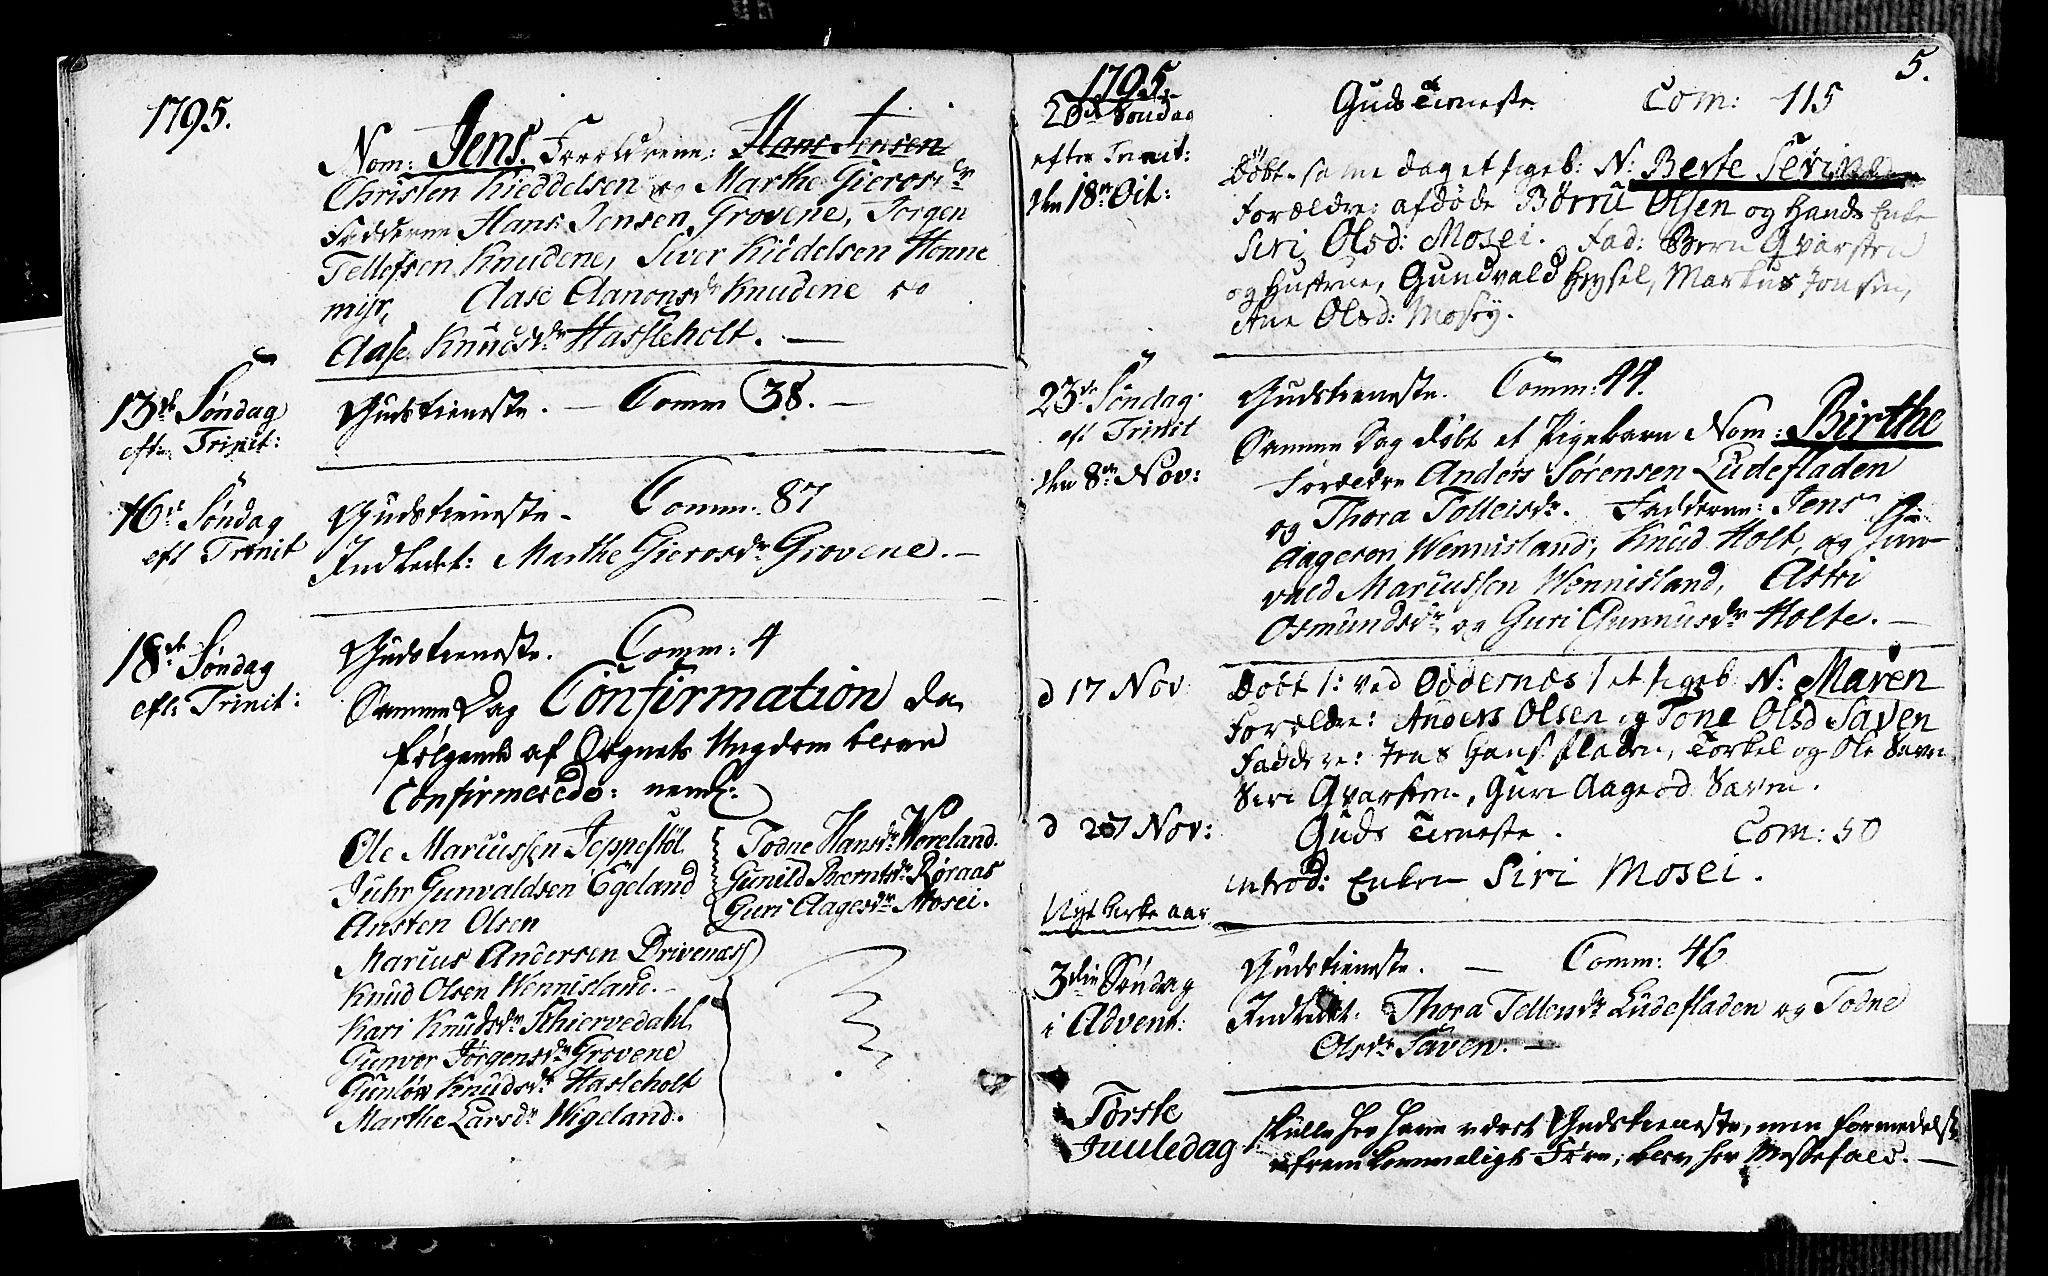 1795.
Nom: Jens. Forældrene: Hans Jensen
Christen Kieddelsen og Marthe Gierosdr
Fadderne Hans Jensen Grovene, Jørgen
Tellefsen Knudene, Siver Kieddelsen Honne
myr, Aase Aanonsdr Knudene og
Aase Knudsdr Hassleholt. —
13de Søndag
eftr Trinit:
Gudstieneste. — Comm 38. —
16de Søndag
eft Trinit
Gudstieneste - Comm: 87
Indledt: Marthe Gierosdr Grovene. —
18de Søndag
eft: Trinit:
Gudstieneste. Comm: 4
Samme Dag Confirmation da
følgende af Sognets Ungdom bleve
Confirmerede: neml:
Ole Mariussen Jeppestøl
Juhr Gunvaldsen Egeland
Ansten Olsen
Marius Andersen Drivenæs
Knud Olsen Wennisland. -
Kari Knudsdr Schiervedahl
Gunvor Jørgensdr Grovene
Gunløv Knudsdr Hasleholt
Marthe Larsdr Wigeland.
Todne Hansdr Woreland.
Gunild Berntsdr Røraas
Guri Aagesdr Mosei.
5.
1795.
20de Søndag
efter Trinit:
den 18de Oct:
Guds Tieneste Com: 115
Døbt samme dag et pigeb: N: Berte Serine
Forældre: afdøde Børru Olsen og hands Enke
Siri Olsd: Mosei. Fad: Bern Qvarsten
og Hustrue, Gundvald Heysel, Markus Jonsen,
Ane Olsd: Mosey.
23de Søndag
eft Trinit
den 8de Nov:
Gudstieneste. Comm: 44.
Samme Dag døbt et Pigebarn Nom: Birthe
Forældre Anders Sørensen Ludefladen
og Thora Tolleisdr. Fadderne: Jens
Aagesen Wennisland, Knud Holt, og Gun-
vald Mariussen Wennisland, Astri
Osmundsdr og Guri Gunnusdr Holte. —
d 17 Nov
Døbt /: ved Oddernes / et pigeb: N: Maren
Forældre: Anders Olsen og Tone Olsd Saven
Faddere: Jens Hans. fladen, Torkel og Ole Saven
Siri Qvarsten, Guri Aagesd Saven.
d 27 Nov:
Guds Tieneste. Com: 50
introd: Enken Siri Mosei.
Nyt kirke aar
3die Søndag
i Advent:
Gudstieneste. — Comm: 46
Indledt: Thora Tolleisdr Ludefladen og Todne
Olsdr Saven. —
Første
Juuledag
skulle her have været Gudstieneste, men formedelst
ufremkommeligt Føre, blev her Messefald. —